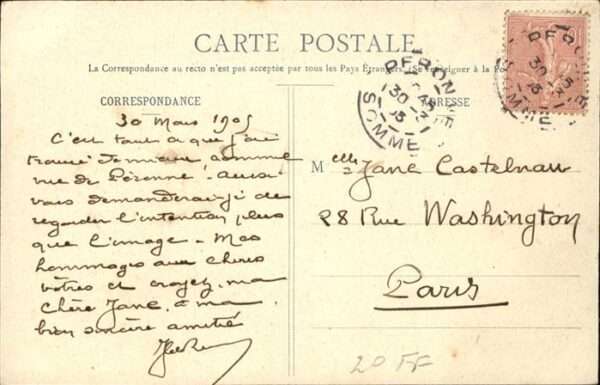 CARTE POSTALE
La Correspondance au recto n'est pas acceptée par tous les Pays Étrangers. (Se renseigner à la Po
CORRESPONDANCE
ADRESSE
PERONNE
30 3
05
SOMME
PERONNE
30 3
05
SOMME
30 Mars 1905
C'est tout ce que j'ai
trouvé de mieux comme
vue de Péronne, aussi
vous demanderai-je de
regarder l'intention plus
que l'image. Mes
hommages aux chères
vôtres et croyez, ma
chère Jane, à ma
bien sincère amitié
Melle Jane Castelnau
28 Rue Washington
Paris
20 FF